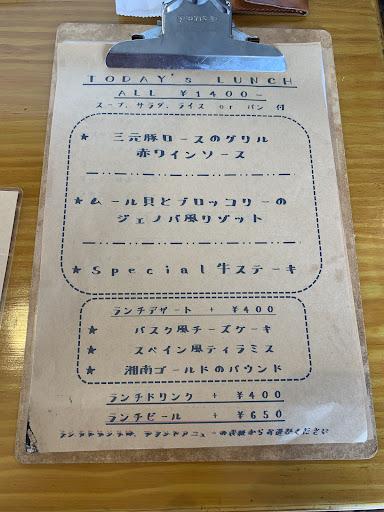 TODAY's LUNCH
ALL ¥1400-
スープ、サラダ、ライス or パン 付
★ 三元豚ロースのグリル
赤ワインソース
★ ムール貝とブロッコリーの
ジェノバ風リゾット
★ Special牛ステーキ
ランチデザート + ¥400
★ バスク風チーズケーキ
★ スペイン風ティラミス
★ 湘南ゴールドのパウンド
ランチドリンク + ¥400
ランチビール + ¥650
ランチドリンクは、グランドメニューの表紙からお選びください